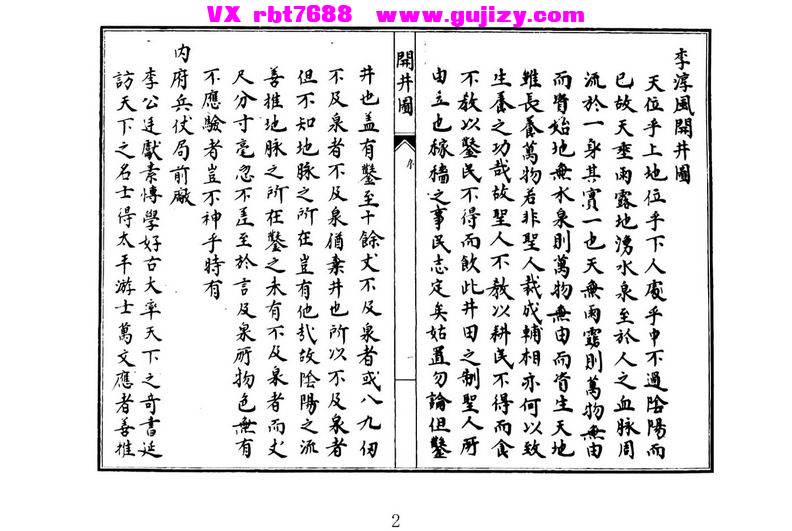 VX rbt7688 www.gujizy.com
李淳風開井圖
天位乎上地位乎下人處乎中不過陰陽而
已故天垂雨露地湧水泉至於人之血脉周
流於一身其實一也天無雨露則萬物無由
而資始地無水泉則萬物無由而資生天地
雖長養萬物若非聖人裁成輔相亦何以致
生養之功哉故聖人不教以耕民不得而食
不教以鑿民不得而飲此井田之制聖人所
由立也稼穡之事民志定矣姑置勿論但鑿
開井圖
序
井也盖有鑿至十餘丈不及泉者或八九仞
不及泉者不及泉猶棄井也所以不及泉者
但不知地脉之所在豈有他哉故陰陽之流
善推地脉之所在鑿之未有不及泉者而丈
尺分寸毫忽不差至於言及泉所物色無有
不應驗者豈不神乎時有
内府兵仗局前廠
李公廷獻素博學好古大率天下之奇書延
訪天下之名士得太平游士萬文應者善推
2